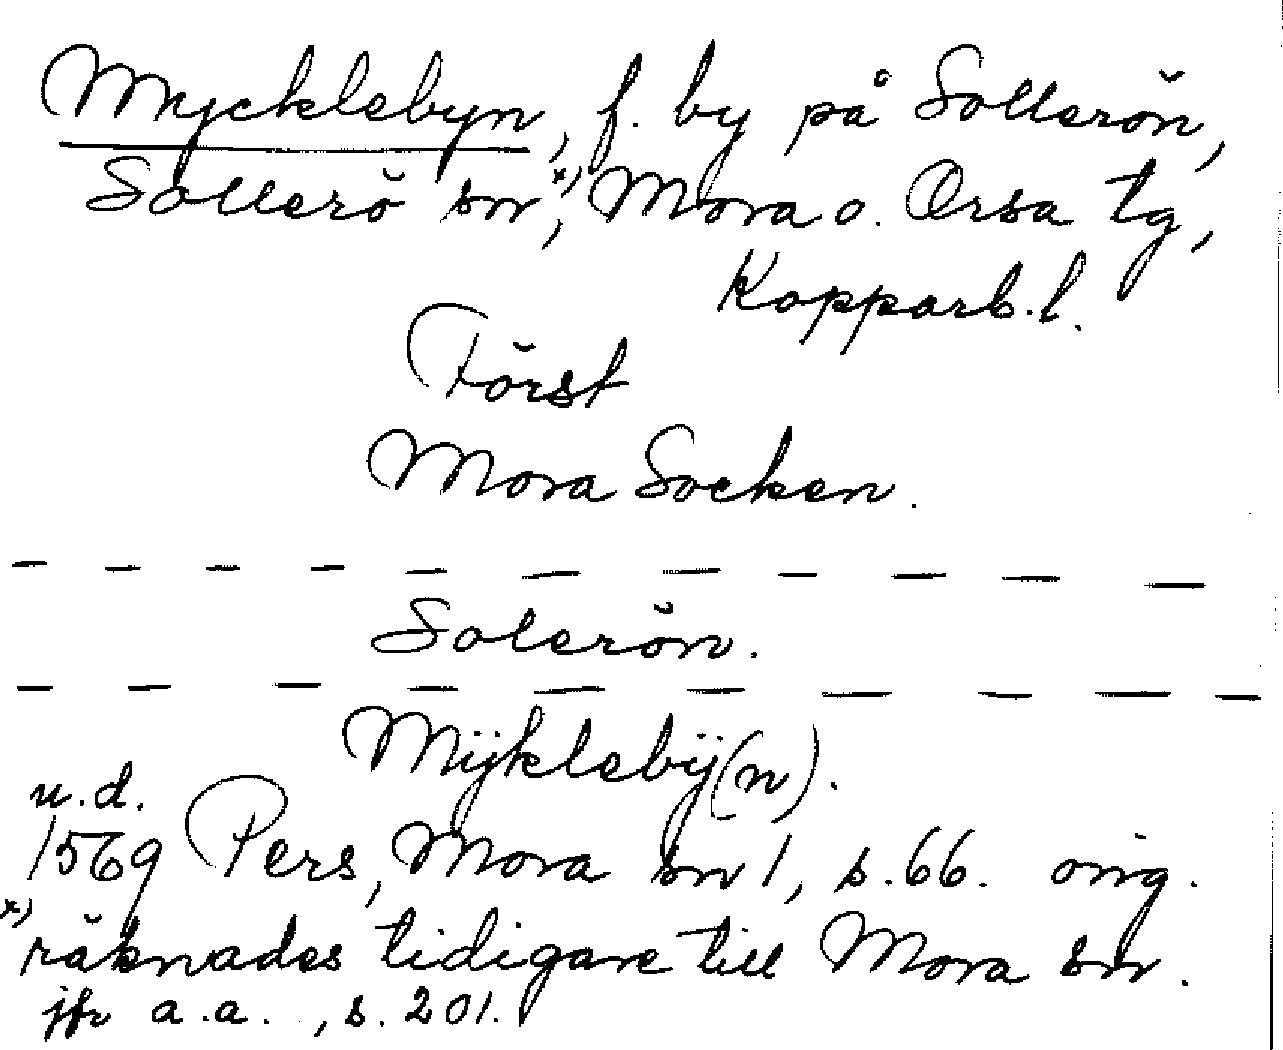 Mycklebyn, f. by på Sollerön,
Sollerö sn x), Mora o. Orsa tg,
Kopparb. l.
Först
Mora Socken.
— — — — — — — — — — —
Solerön.
— — — — — — — — — —
Mÿklebÿ(n).
u.d.
1569 Pers, Mora sn 1, s. 66. orig.
x) räknades tidigare till Mora sn.
jfr a.a., s. 201.